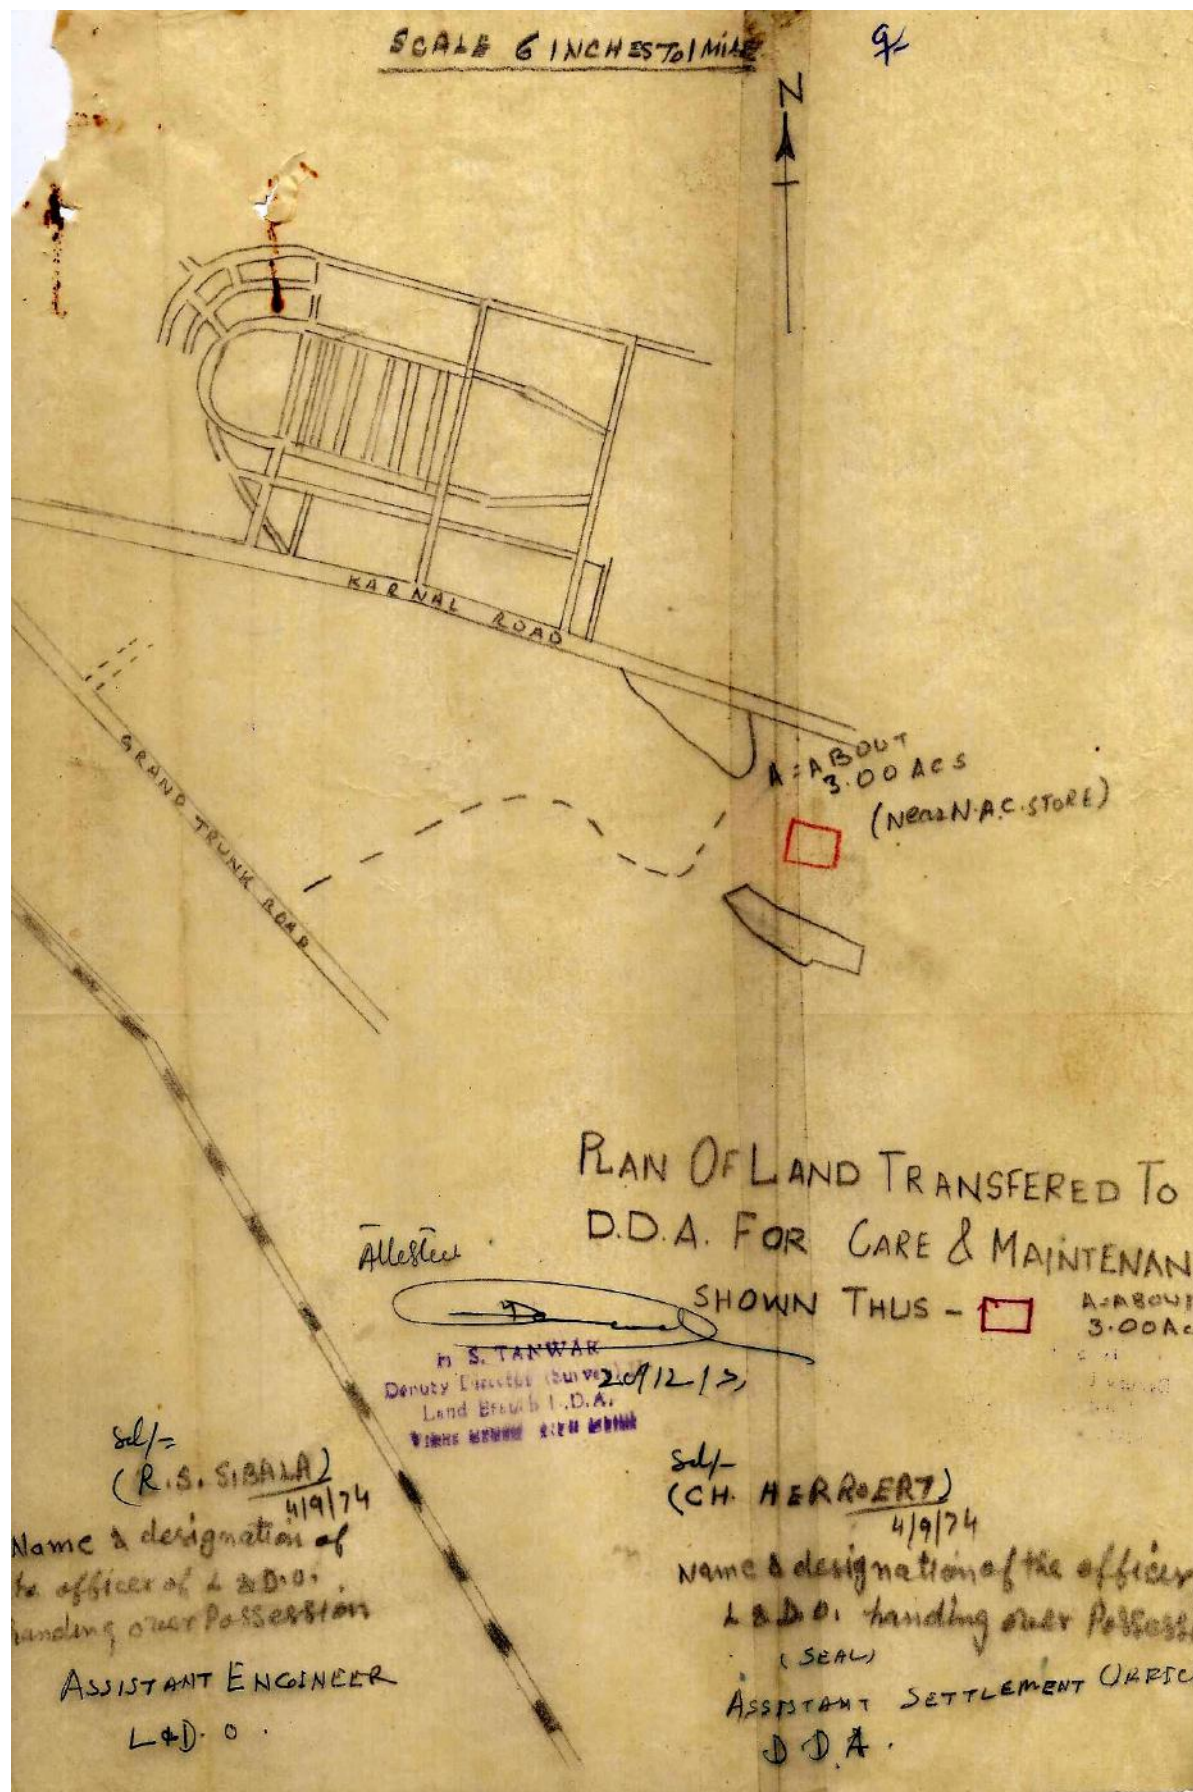 SCALE 6 INCHES TO 1 MILE
N
KARNAL ROAD
GRAND TRUNK ROAD
A=ABOUT
3.00 ACS
(Near N.A.C. STORE)
PLAN OF LAND TRANSFERED TO
D.D.A. FOR CARE & MAINTENAN
SHOWN THUS -
A=ABOUT
3.00 Ac
Attested
S. TANWAR
Deputy Director (Survey)
Land Branch D.D.A.
20/12/
Sd/-
(R.S. SIBALA)
4/9/74
Name & designation of
officer of L & D.O.
handing over Possession
ASSISTANT ENGINEER
L&D.O.
Sd/-
(CH. HERROERT)
4/9/74
Name & designation of the officer
L & D.O. handing over Possess
(SEAL)
ASSISTANT SETTLEMENT OFFIC
D D A.